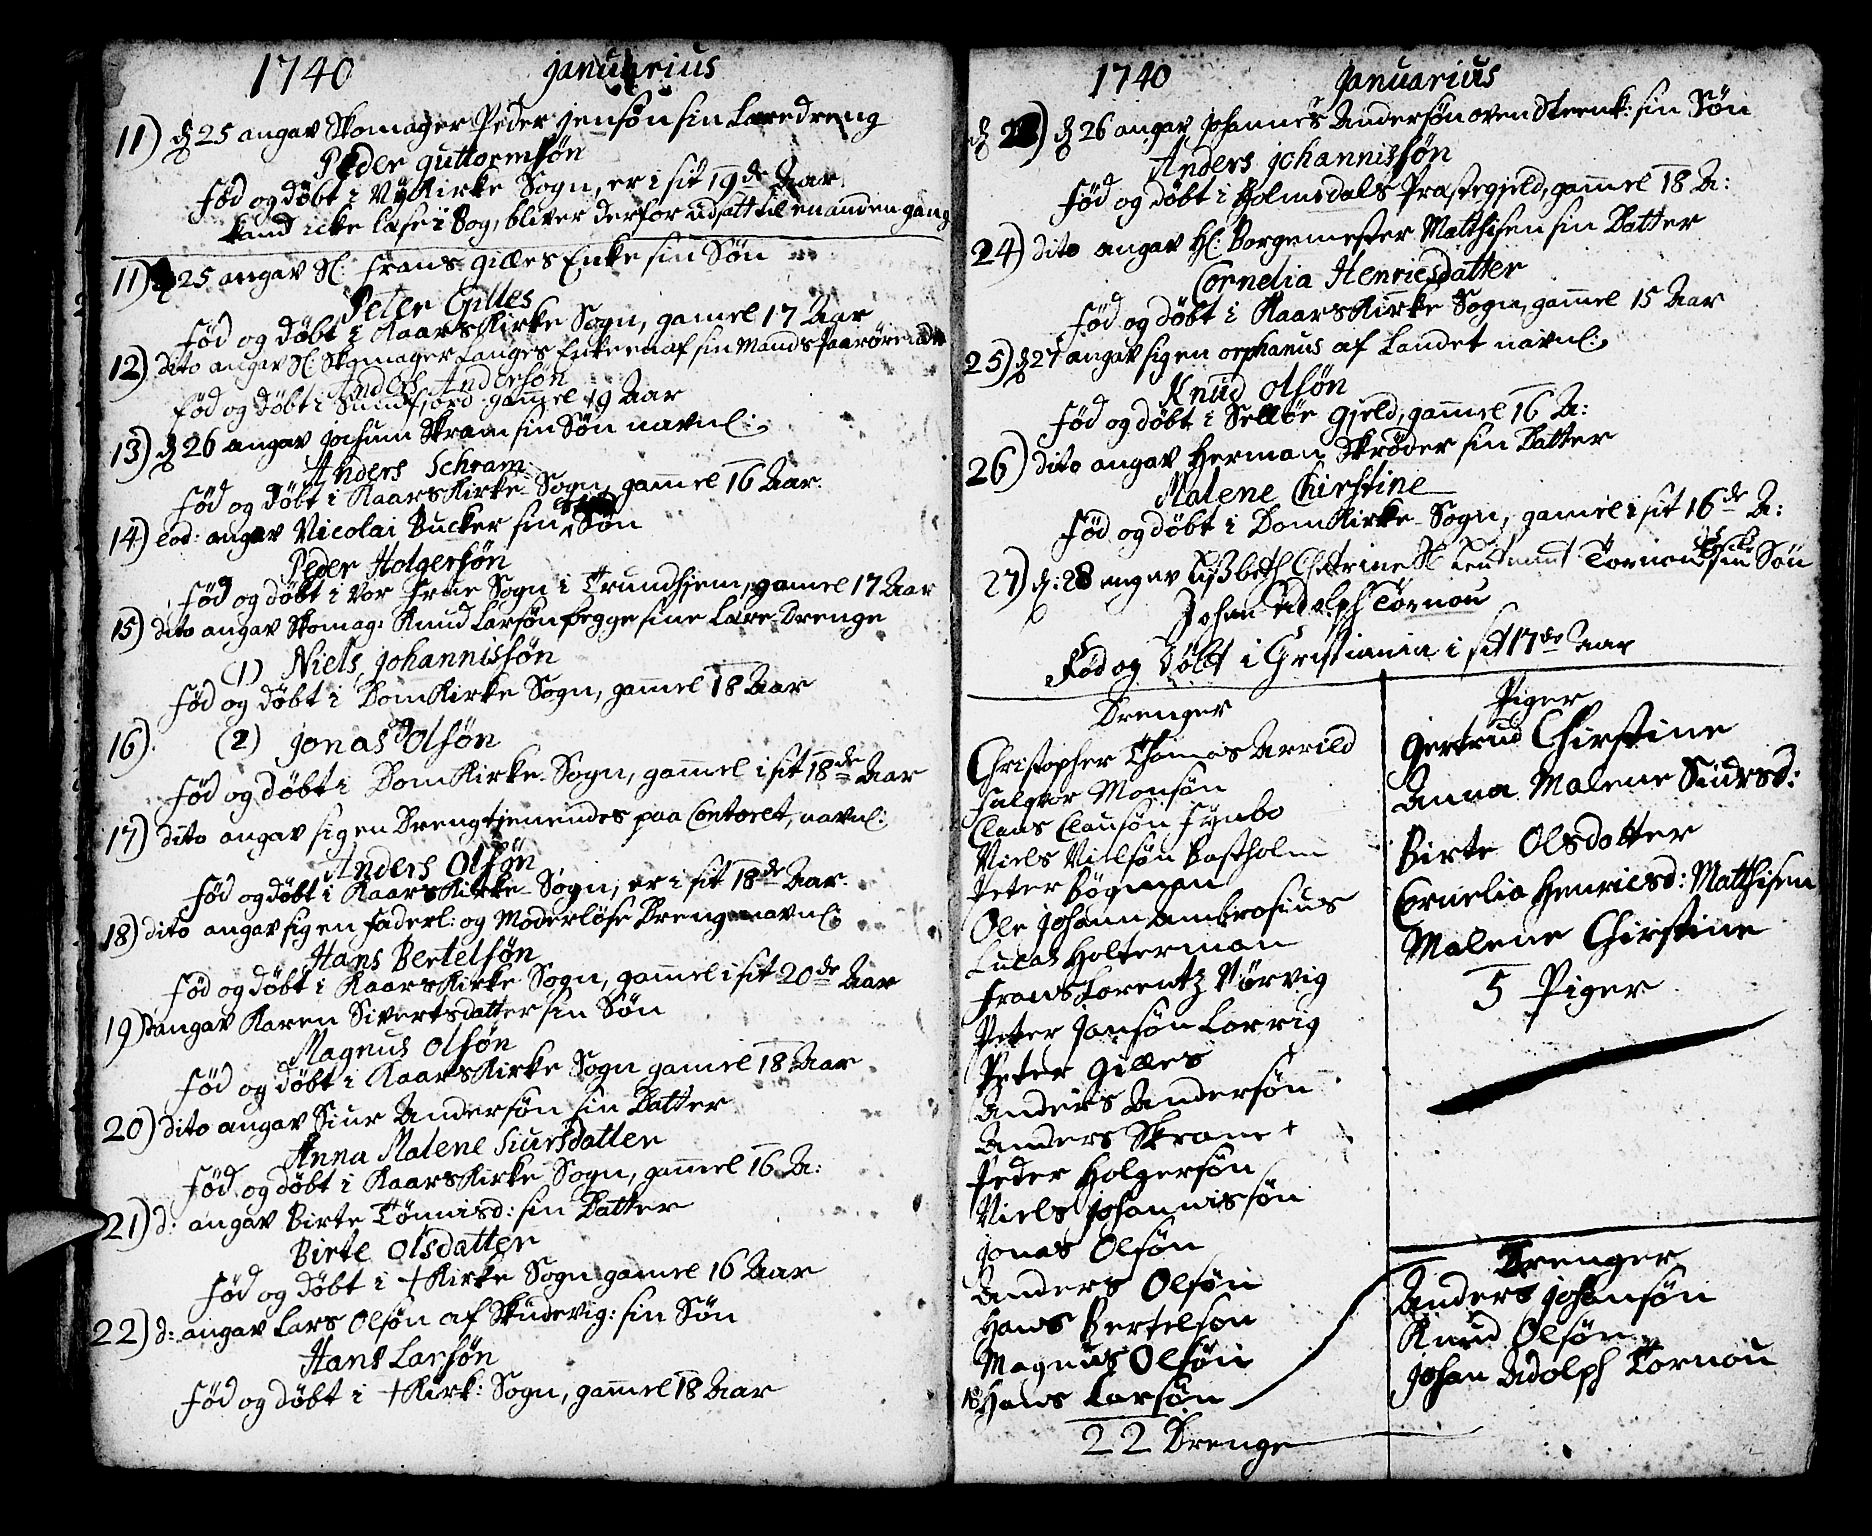 1740 januarius
11) d 25 angav Skomager Peder jensøn sin Læredreng
Peder guttormsøn
Fød og døbt i NyKirke Sogn, er i sit 19de Aar
kand icke læse i Bog, bliver derfor udsatt til en anden gang
11) d 25 angav Sl: Frans gilles Enke sin Søn
Peter Gilles
Fød og døbt i KaarsKirke Sogn, gamel 17 Aar
12) dito angav Sl. Skomager Langes Enke en af sin Mands
Anders Andersøn
Fød og døbt i Sundfjord gamel 19 Aar
13) d 26 angav jochum Skram sin Søn navnl:
Anders Schram
Fød og døbt i KaarsKirke Sogn, gammel 16 Aar.
14) eod: angav Nicolai Bucker sin Søn
Peder Holgersøn
Fød og døbt i Vor Frue Sogn i Trundhjem, gamel 17 Aar
15) dito angav Skomag: Knud Larsøn begge sine Lære-Drenge
(1) Niels johannissøn
Fød og døbt i DomKirke Sogn, gammel 18 Aar
16) (2) jonas Olsøn
Fød og døbt i DomKirke Sogn, gammel i sit 18de Aar
17) dito angav sig en Dreng tjenendes paa Contoret, navnl:
Anders Olsøn
Fød og døbt i KaarsKirke Sogn, er i sit 18de Aar.
18) dito angav sig en Faderl: og Moderløse Dreng navnl:
Hans Bertelsøn
Fød og døbt i KaarsKirke Sogn, gammel i sit 20de Aar
19) d angav Karen Sivertsdatter sin Søn
Magnus Olsøn
Fød og døbt i KaarsKirke Sogn gamel 18 Aar
20) dito angav Siur Andersøn sin Datter
Anna Malene Siursdatter
Fød og døbt i KaarsKirke Sogn, gammel 16 A:
21) d: angav Birte Tønnisd: sin Datter
Birte Olsdatter
Fød og døbt i +Kirke Sogn gamel 16 Aar
22) d: angav Lars Olsøn af Skudevig: sin Søn
Hans Larsøn
Fød og døbt i +Kirk: Sogn, gammel 18 Aar
1740 januarius
d 26 angav johannes Andersøn oven Steenk: sin Søn
Anders johannissøn
Fød og døbt i Holmedals Præstegjeld, gammel 18 A:
24) dito angav Hl: Borgemester Matthisen sin Datter
Cornelia Henricsdatter
Fød og døbt i KaarsKirke Sogn, gammel 15 Aar
25) d 27 angav sig en orphanus af Landet navnl:
Knud Olsøn
Fød og døbt i Selløe gjeld, gammel 16 A:
26) dito angav Herman Skrøder sin Datter
Malene Chirstine
Fød og døbt i DomKirke Sogn, gamel i sit 16de A:
27) d: 28 angav Lissbeth Chatrine Sl Leutnant Tornous sin Søn
Johan Adolph Tornou
Fød og Døbt i Christiania i sit 17de Aar
Drenger
Christopher Thomas Arrild
Falqvor Monsøn
Claus Clausøn Fynbo
Niels Nielsøn Bastholm
Peter Bøgman
Ole johann Ambrosius
Lucas Holterman
Frans Lorentz Nørvig
Peter Jansøn Lorrig
Peter Gilles
Anders Andersøn
Anders Skram +
Peder Holgersøn
Niels johannissøn
jonas Olsøn
Anders Olsøn
Hans Bertelsøn
Magnus Olsøn
18 Hans Larsøn
22 Drenge
Piger
Gertrud Chirstine
Anna Malene Siursd:
Birte Olsdatter
Cornelia Henricsd: Matthisen
Malene Chirstine
5 Piger
Drenger
Anders johansøn
Knud Olsøn
johan Adolph Tornou